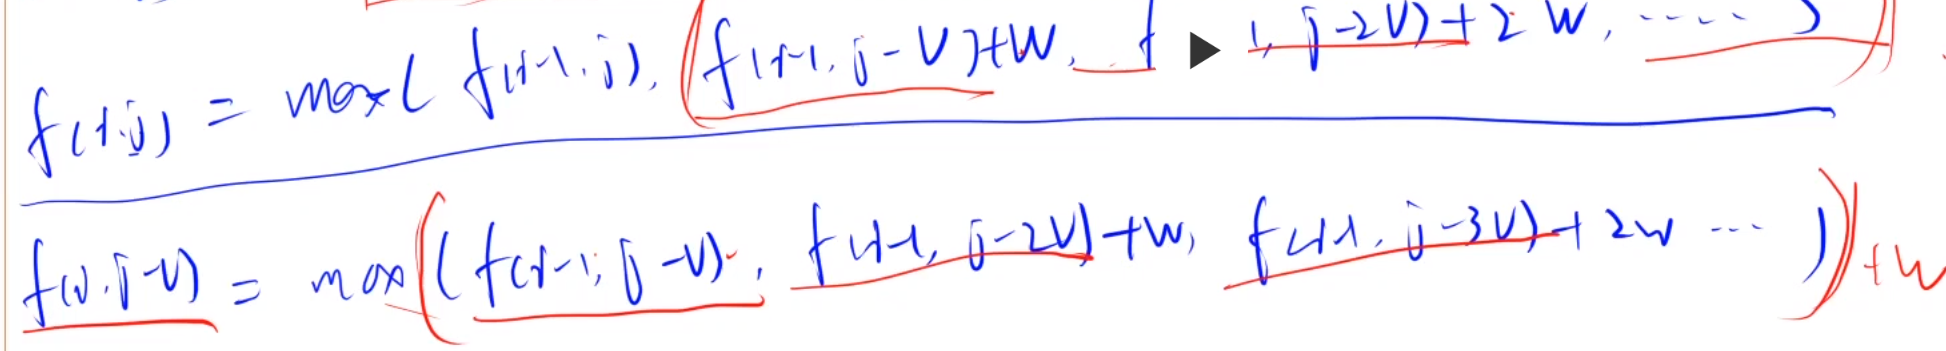 f(i,j) = max( f(i-1,j), (f(i-1,j-V)+W, f 1, j-2V)+2W, ..... ))
f(i,j-V) = max((f(i-1,j-V), f(i-1,j-2V)+W, f(i-1,j-3V)+2W ... ))+W